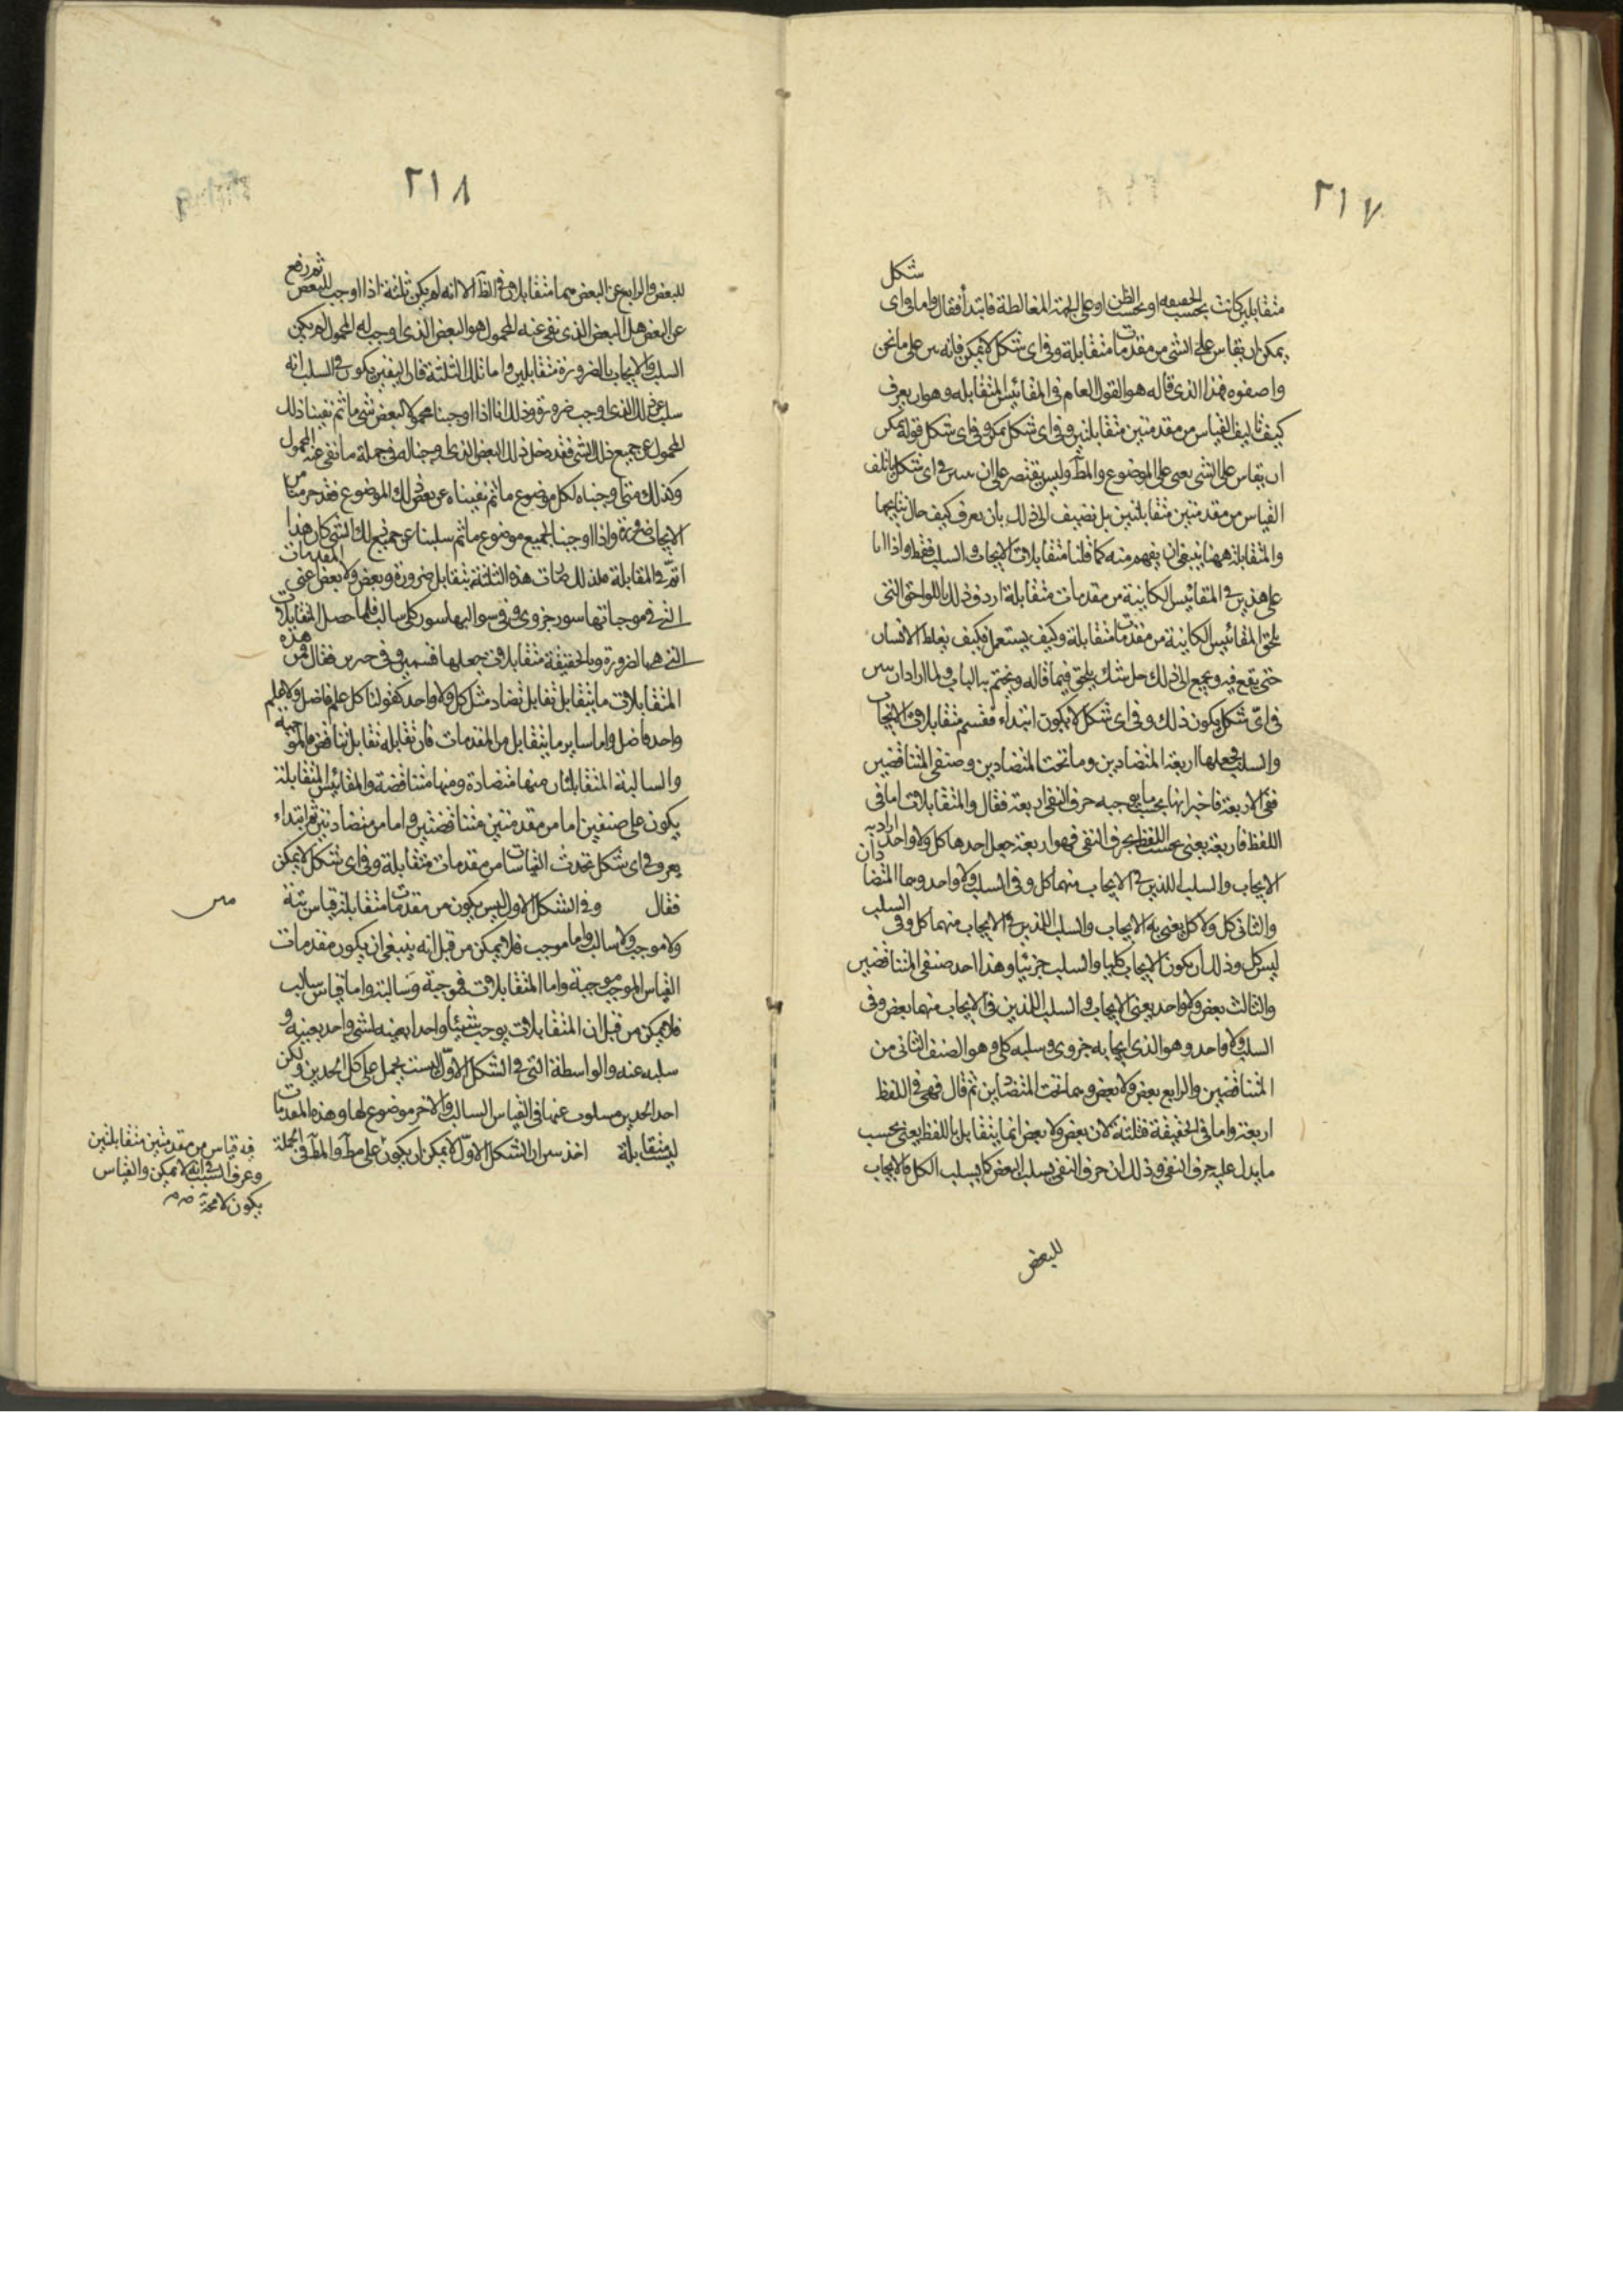 ٢١٧
شكل
متقابلين كانت بحسب الحقيقه او بحسب الظن او على جهة المغالطة فابتدأ فقال واما وفى اى
يمكن ان يقاس على الشى من مقدمات متقابلة وفى اى شكل لا يمكن فانه على ما نحن
واصفوه فهذا الذى قاله هو القول العام فى المقائيس المتقابله وهو ان يعرف
كيف تاليف القياس من مقدمتين متقابلتين وفى اى شكل يمكن وفى اى شكل قوله يمكن
ان يقاس على الشى يعنى على الموضوع والمط وليس يقتصر على ان فى اى شكل ياتلف
القياس من مقدمتين متقابلتين بل نضيف الى ذلك بان يعرف كيف حال نتايجها
والمتقابلة ههنا ينبغى ان يفهم منه كما قلنا متقابلات الايجاب والسلب فقط واذا
على هذين فى المقائيس الكاينة من مقدمات متقابلة اردف ذلك باللواحق التى
تلحق المقائيس الكاينة من مقدمات متقابلة وكيف يستعمل وكيف يغلط الانسان
حتى يقع فيه ويجمع الى ذلك حل شك يلحق فيما قاله ويختم به الباب ولما اراد ان
فى اىّ شكل يكون ذلك وفى اى شكل لا يكون ابتداء فقسم متقابلات الايجاب
والسلب فجعلها اربعة المتضادين وما تحت المتضادين وصنفى المتناقضين
ففى الاربعة فاخبر انها بحسب ما يوجبه حرف النفى اربعة فقال والمتقابلات اما فى
اللفظ فاربعة يعنى بحسب اللفظ بحرف النفى فهو اربعة جعل احدها كل ولا واحد اراد به
الايجاب والسلب اللذين فى الايجاب منهما كل وفى السلب ولا واحد وهما المتضادان
والثانى كل ولا كل يعنى به الايجاب والسلب اللذين فى الايجاب منهما كل وفى السلب
ليس كل وذلك ان يكون الايجاب كليا والسلب جزئيا وهذا احد صنفى المتناقضين
والثالث بعض ولا واحد يعنى الايجاب والسلب اللذين فى الايجاب منهما بعض وفى
السلب ولا واحد وهو الذى ايجابه جزوى وسلبه كلى وهو الصنف الثانى من
المتناقضين والرابع بعض ولا بعض وهما تحت المتضادين ثم قال فهى فى اللفظ
اربعة واما فى الحقيقة فثلثة لان بعض ولا بعض انما يتقابل باللفظ يعنى بحسب
ما يدل عليه حرف النفى وذلك ان حرف النفى يسلب البعض كما يسلب الكل فالايجاب
للبعض
٢١٨
للبعض والرابع عن البعض هما متقابلان فى الظ الا انه لم يكن ثلثة اذا اوجب للبعض ثم رفع
عن البعض هل البعض الذى نفى عنه المحمول هو البعض الذى اوجب له المحمول لم يكن
السلب والايجاب بالضرورة متقابلين واما تلك الثلثة فان اليقين يكون فى السلب انه
سلب عن ذلك الذى اوجب ضرورة وذلك انا اذا اوجبنا محمولا لبعض شى ما ثم نفينا ذلك
المحمول عن جميع ذلك الشى فقد دخل ذلك البعض الذى اوجبنا له فى جملة ما نفى عنه المحمول
وكذلك متى اوجبناه لكل موضوع ما ثم نفيناه عن بعض ذلك الموضوع فقد من
الايجاب ضرورة واذا اوجبنا لجميع موضوع ما ثم سلبنا عن جميع ذلك الشى كان هذا
اتمّ فى المقابلة فلذلك صارت هذه الثلثة تتقابل ضرورة وبعض ولا بعض عنى المقدمات
التى فى موجباتها سور جزوى وفى سوالبها سور كلى سالب فلما حصل المتقابلات
التى هى بالضرورة وبالحقيقة متقابلات جعلها قسمين وفى فقال ومن هذه
المتقابلات ما يتقابل تقابل تضاد مثل كل ولا واحد كقولنا كل علم فاضل ولا علم
واحد فاضل واما ساير ما يتقابل من المقدمات فان تقابله تقابل تناقض فالموجبة
والسالبة المتقابلتان منها متضادة ومنها متناقضة والمقائيس المتقابلة
يكون على صنفين اما من مقدمتين متناقضتين واما من متضادتين ثم ابتداء
يعرف فى اى شكل تحدث القياسات من مقدمات متقابلة وفى اى شكل لا يمكن
فقال وفى الشكل الاول ليس يكون من مقدمات متقابلة قياس بتة
ولا موجب ولا سالب واما موجب فلا يمكن من قبل انه ينبغى ان يكون مقدمات
القياس الموجب موجبة واما المتقابلات فموجبة وسالبة واما قياس سالب
فلا يمكن من قبل ان المتقابلات يوجب شيئا واحدا بعينه لشى واحد بعينه و
سلبه عنه والواسطة التى فى الشكل الاوّل ليست يحمل على كل الحدين ولكن
احد الحدين مسلوب عنها فى القياس السالب والاخر موضوع لها وهذه المقدمات
ليست متقابلة اخذ ان الشكل الاوّل لا يمكن ان يكون على مط والمط فى الجملة
فيه قياس من مقدمتين متقابلتين
وعرف السبب فى انه لا يمكن والقياس
يكون لا محة